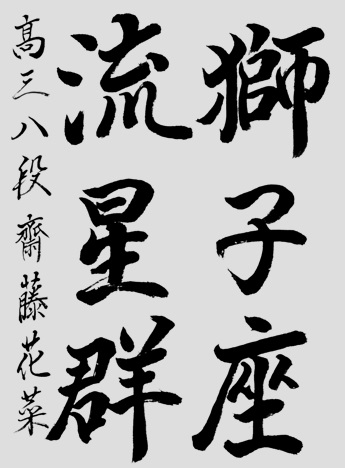 獅子座
流星群
高三八段齋藤花菜